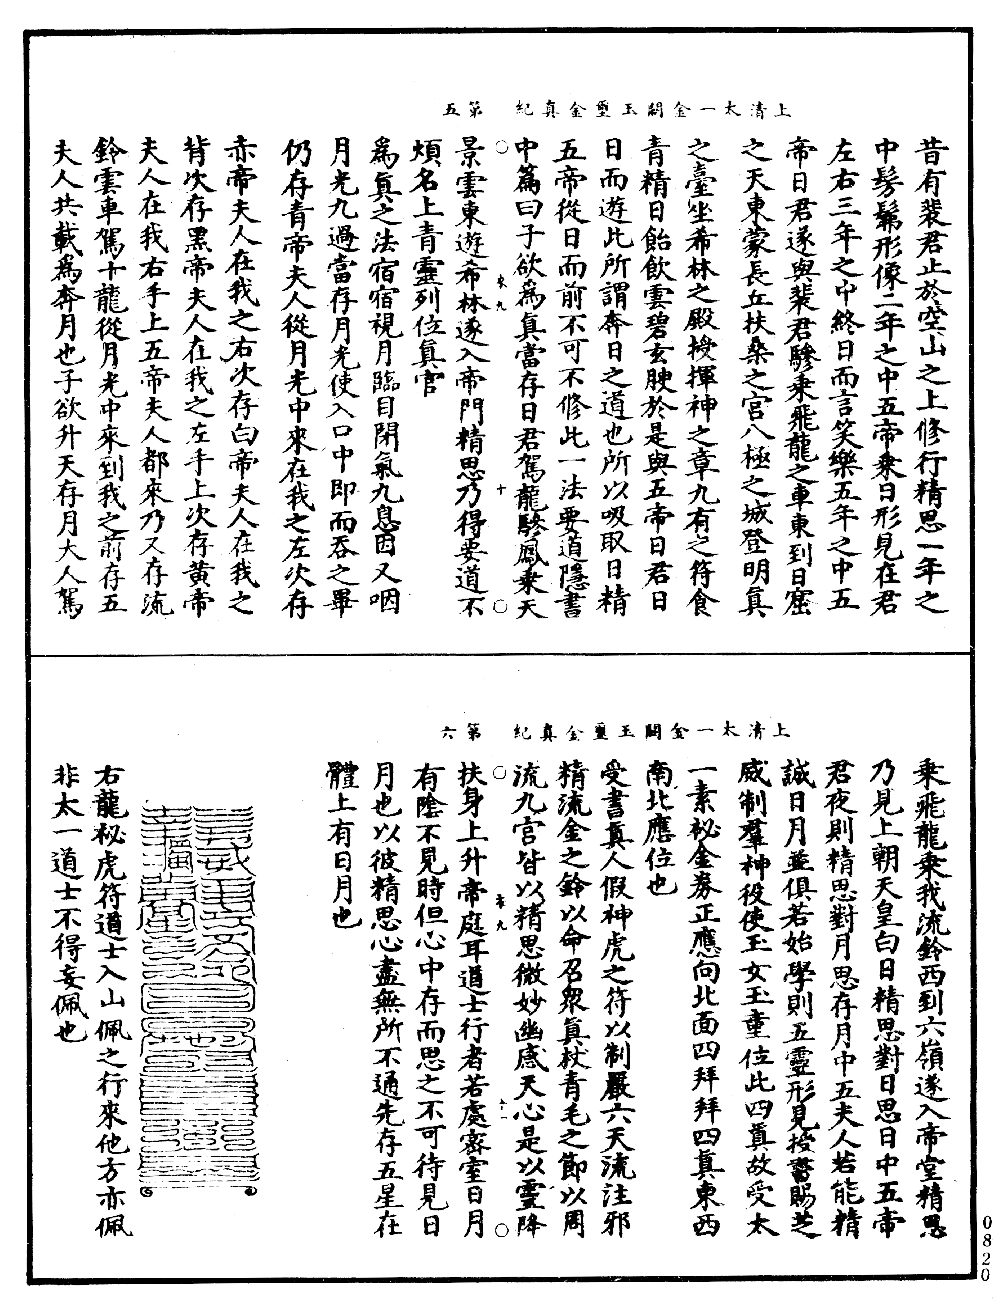 上清太一金闕玉璽金真紀　第五
昔有裴君止於空山之上修行精思一年之
中髣髴形像二年之中五帝乘日形見在君
左右三年之中終日而言笑樂五年之中五
帝日君遂與裴君驂乘飛龍之車東到日窟
之天東蒙長丘扶桑之宮八極之城登明真
之臺坐希林之殿授揮神之章九有之符食
青精日飴飲雲碧玄腴於是與五帝日君日
日而遊此所謂奔日之道也所以吸取日精
五帝從日而前不可不修此一法要道隱書
中篇曰子欲為真當存日君駕龍驂鳳乘天
景雲東遊希林遂入帝門精思乃得要道不
煩名上青靈列位真官
為真之法宿宿視月臨目閉氣九息因又咽
月光九過當存月光使入口中即而吞之畢
仍存青帝夫人從月光中來在我之左次存
赤帝夫人在我之右次存白帝夫人在我之
背次存黑帝夫人在我之左手上次存黃帝
夫人在我右手上五帝夫人都來乃又存流
鈴雲車駕十龍從月光中來到我之前存五
夫人共載為奔月也子欲升天存月大人駕
上清太一金闕玉璽金真紀　第六
乘飛龍乘我流鈴西到六嶺遂入帝堂精思
乃見上朝天皇白日精思對日思日中五帝
君夜則精思對月思存月中五夫人若能精
誠日月並俱若始學則五靈形見授書賜芝
威制羣神役使玉女玉童位此四真故受太
一素祕金券正應向北面四拜拜四真東西
南北應位也
受書真人假神虎之符以制嚴六天流注邪
精流金之鈴以命召眾真杖青毛之節以周
流九宮皆以精思微妙幽感天心是以靈降
扶身上升帝庭耳道士行者若處密室日月
有陰不見時但心中存而思之不可待見日
月也以彼精思心盡無所不通先存五星在
體上有日月也
右龍祕虎符道士入山佩之行來他方亦佩
非太一道士不得妄佩也
0820